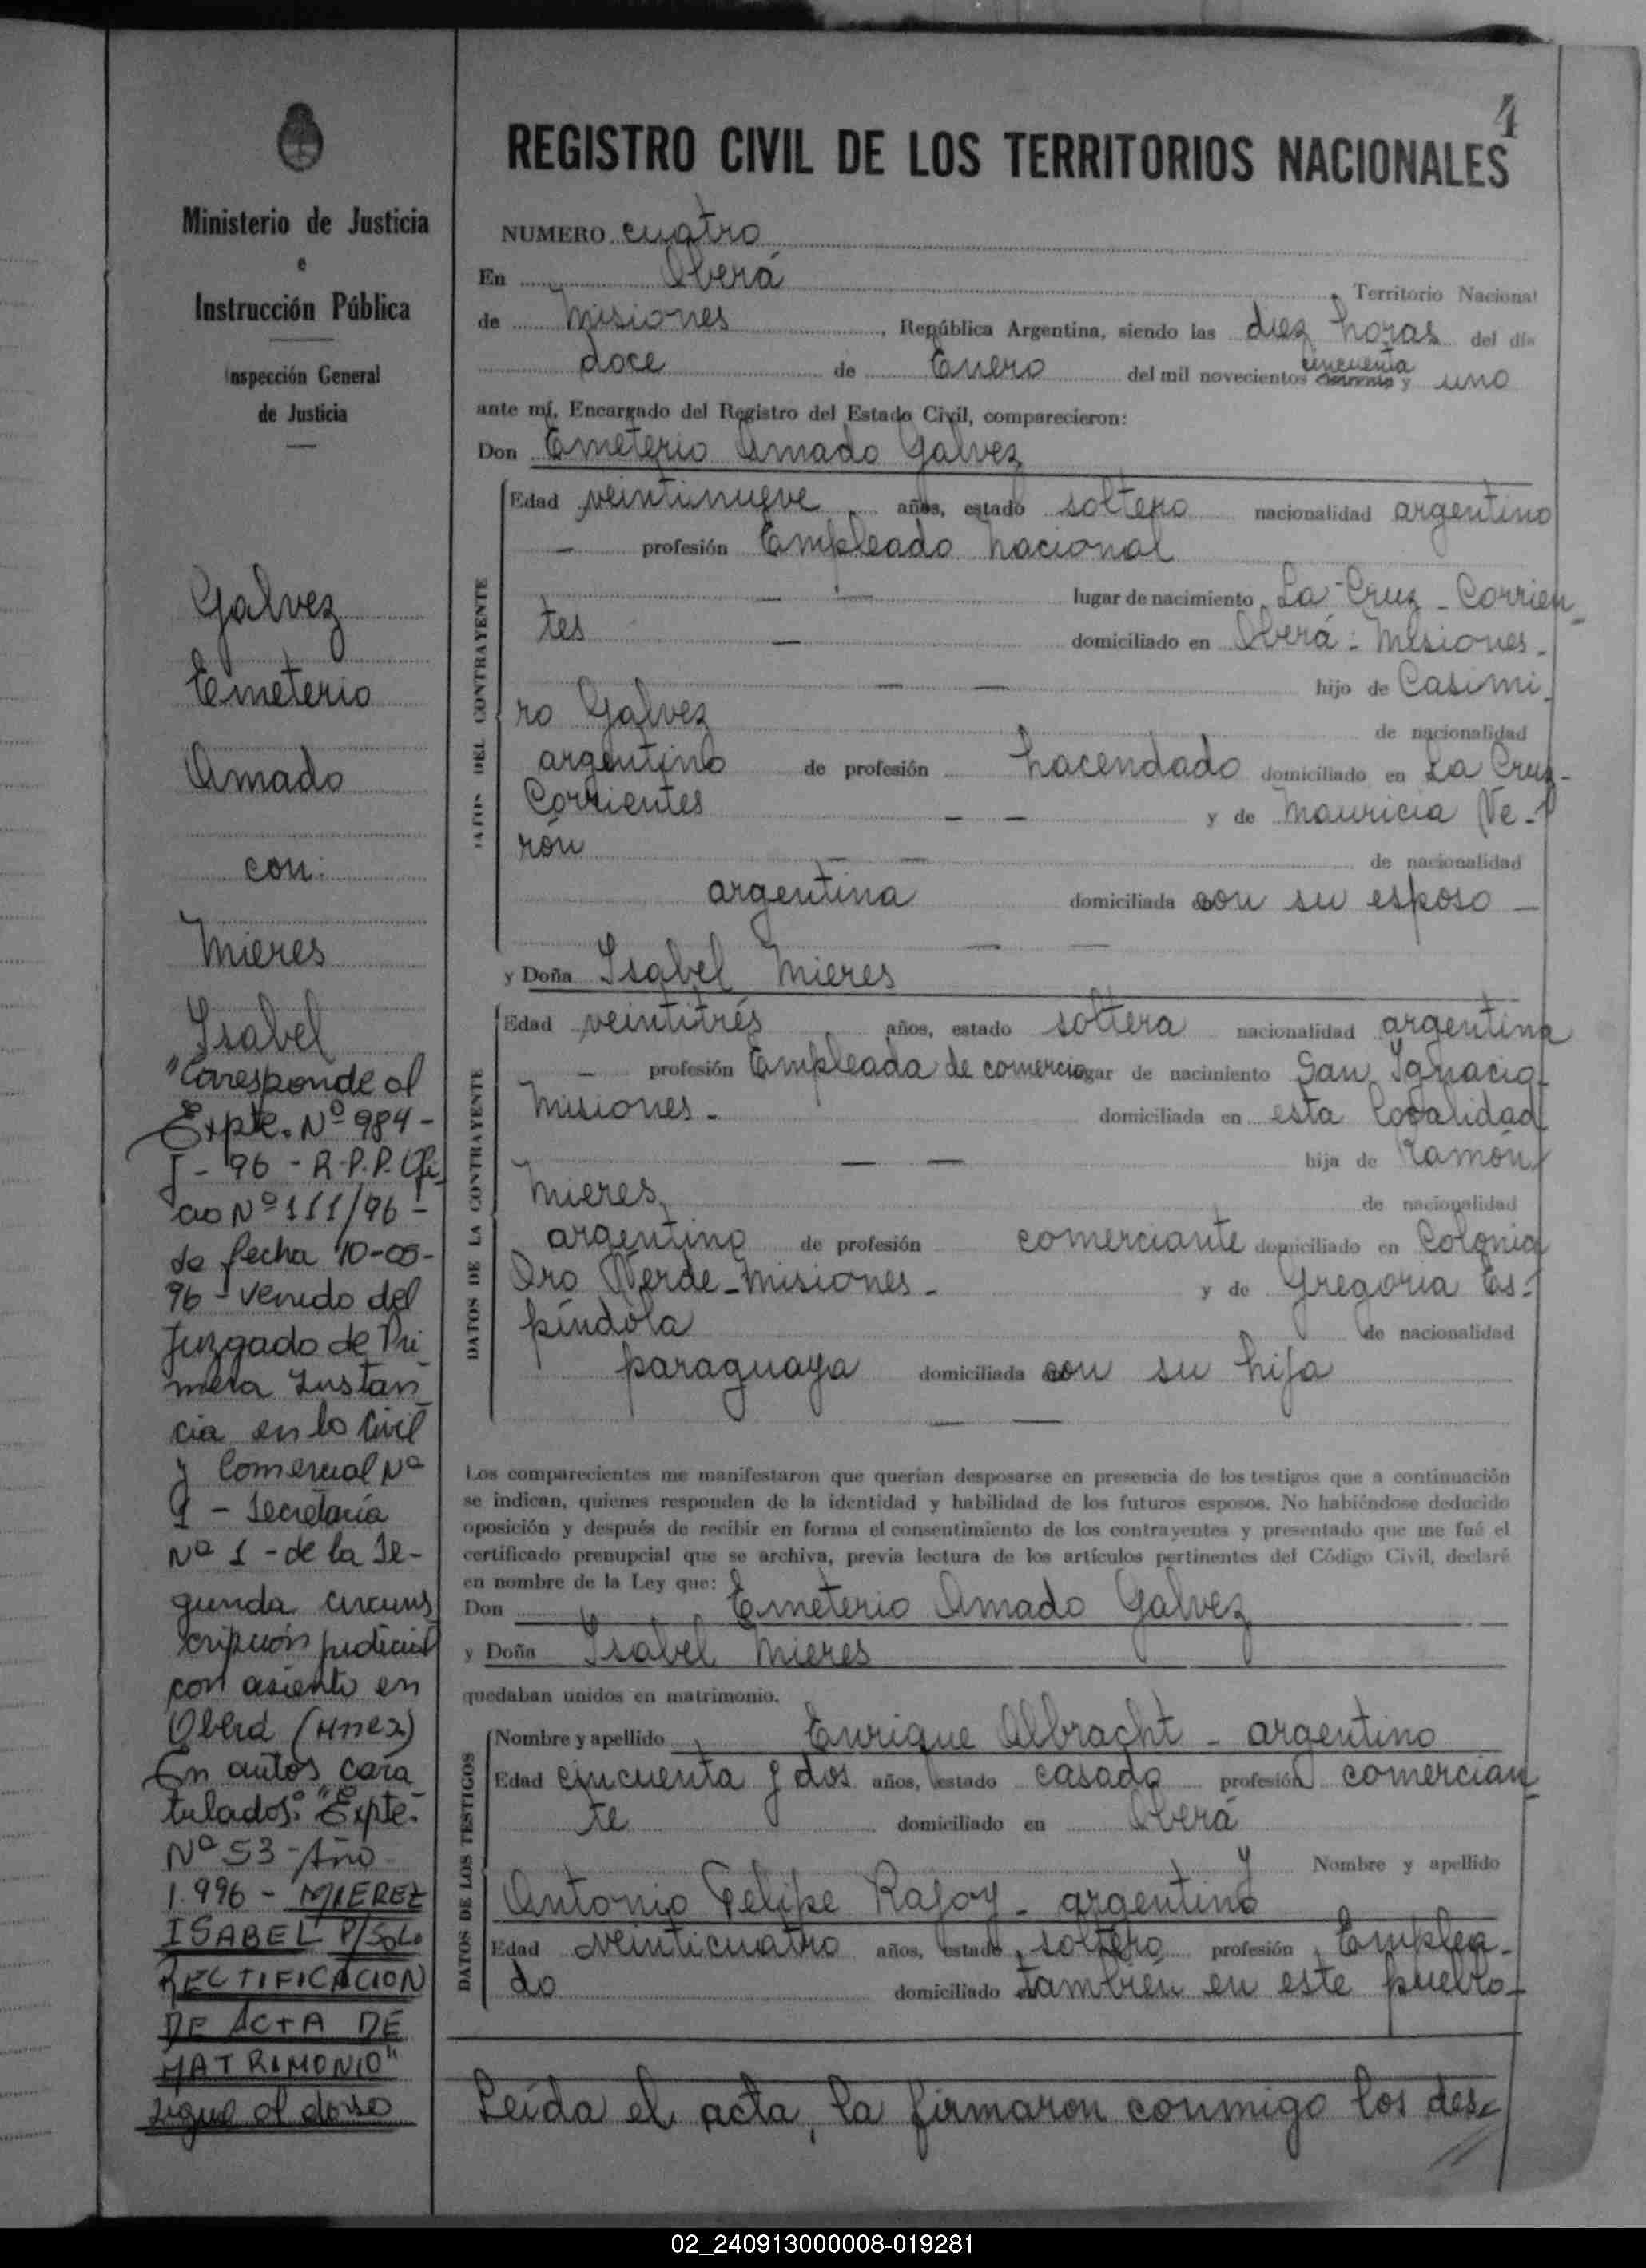 4
Ministerio de Justicia
e
Instrucción Pública
Inspección General
de Justicia
Galvez
Emeterio
Amado
con:
Mieres
Isabel
"Coresponde al
Expte. Nº 984-
I - 96 - R.P.P. Ofi
cio Nº 111/96 -
de fecha 10-05-
96 - venido del
Juzgado de Pri
mera Instan
cia en lo Civil
y Comercial Nº
1 - Secretaría
Nº 1 - de la Se-
gunda circuns
cripción judicial
con asiento en
Oberá (Mnes)
En autos cara
tulados: "Expte.
Nº 53 - Año
1.996 - MIEREZ
ISABEL P/SOL.
RECTIFICACION
DE ACTA DE
MATRIMONIO"
sigue al dorso
REGISTRO CIVIL DE LOS TERRITORIOS NACIONALES
NUMERO cuatro
En Oberá, Territorio Nacional
de Misiones, República Argentina, siendo las diez horas del día
doce de Enero del mil novecientos cincuenta y uno
ante mí, Encargado del Registro del Estado Civil, comparecieron:
Don Emeterio Amado Galvez
DATOS DEL CONTRAYENTE
Edad veintinueve años, estado soltero nacionalidad argentino
— profesión Empleado Nacional
lugar de nacimiento La Cruz - Corrien
tes — domiciliado en Oberá - Misiones -
— — hijo de Casimi
ro Galvez de nacionalidad
argentino de profesión hacendado domiciliado en La Cruz -
Corrientes — — y de Mauricia Ve-
rón — — de nacionalidad
argentina domiciliada con su esposo —
— —
y Doña Isabel Mieres
DATOS DE LA CONTRAYENTE
Edad veintitrés años, estado soltera nacionalidad argentina
— profesión Empleada de comercio lugar de nacimiento San Ignacio -
Misiones - domiciliada en esta localidad
— — hija de Ramón
Mieres, de nacionalidad
argentino de profesión comerciante domiciliado en Colonia
Oro Verde - Misiones - y de Gregoria Es-
píndola de nacionalidad
paraguaya domiciliada con su hija
— —
Los comparecientes me manifestaron que querían desposarse en presencia de los testigos que a continuación
se indican, quienes responden de la identidad y habilidad de los futuros esposos. No habiéndose deducido
oposición y después de recibir en forma el consentimiento de los contrayentes y presentado que me fué el
certificado prenupcial que se archiva, previa lectura de los artículos pertinentes del Código Civil, declaré
en nombre de la Ley que:
Don Emeterio Amado Galvez
y Doña Isabel Mieres
quedaban unidos en matrimonio.
DATOS DE LOS TESTIGOS
Nombre y apellido Enrique Albracht - argentino
Edad cincuenta y dos años, estado casado profesión comercian
te domiciliado en Oberá
y Nombre y apellido
Antonio Felipe Rajoy - argentino
Edad veinticuatro años, estado soltero profesión Emplea-
do domiciliado también en este pueblo -
Leída el acta, la firmaron conmigo los des
02_240913000008-019281